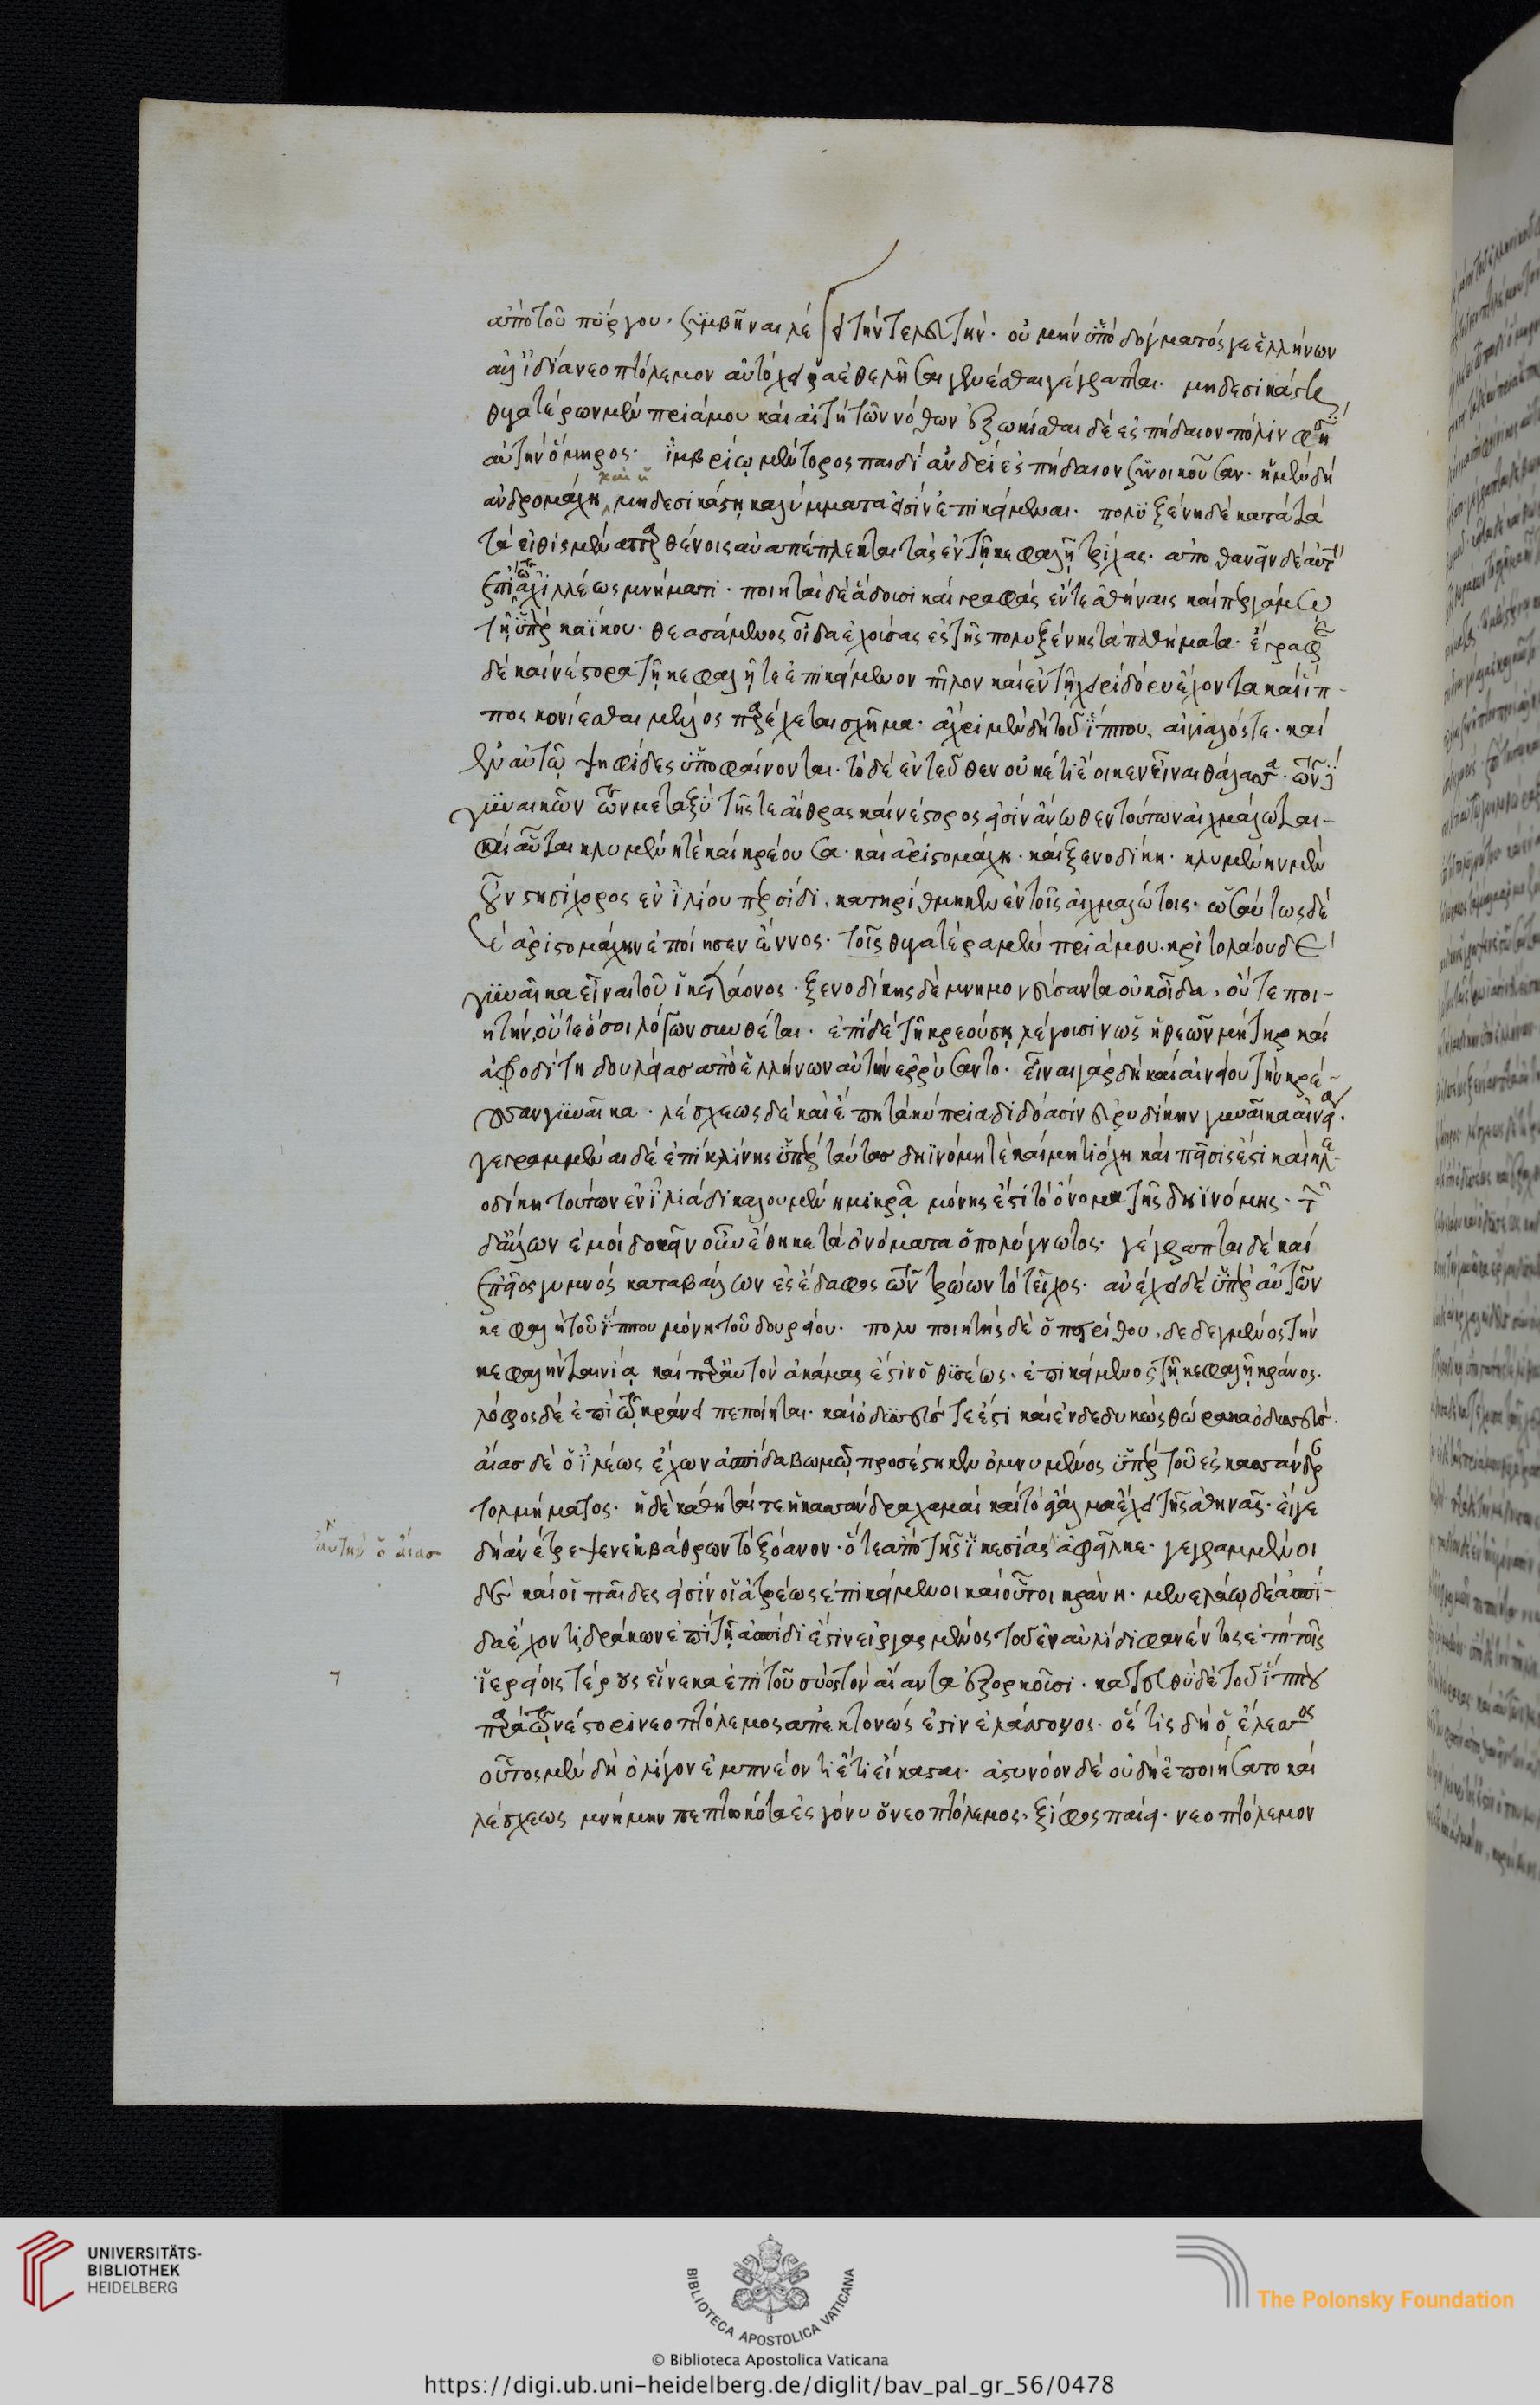 ἀπὸ τοῦ πύργου. συμβῆναι λέγει τὴν τελευτήν. οὐ μὴν ὑπὸ δόγματός γε ἑλλήνων
ἀλλ' ἰδίᾳ νεοπτόλεμον αὐτόχειρα ἐθελῆσαι γενέσθαι. γέγραπται μηδεσικάστη
θυγατέρων μὲν πριάμου καὶ αὐτὴ τῶν νόθων ἐξωκίσθαι δὲ ἐς πήδαιον πόλιν φησὶν
αὐτὴν ὅμηρος. ἰμβρίῳ μέντορος παιδὶ ἀνδρὶ ἐς πήδαιον συνοικοῦσαν. ἡ μὲν δὴ
ἀνδρομάχη καὶ ἡ μηδεσικάστη καλύμματά εἰσιν ἐπικείμεναι. πολυξένη δὲ κατὰ τὰ
τὰ εἰθισμένα παρθένοις ἀναπέπλεκται τὰς ἐν τῇ κεφαλῇ τρίχας. ἀποθανεῖν δὲ αὐτὴν
ἐπὶ τῷ ἀχιλλέως μνήματι. ποιηταὶ δὲ ᾄδουσι καὶ γραφὰς ἔν τε ἀθήναις καὶ περγάμῳ
τῇ ὑπὲρ καΐκου. θεασάμενος οἶδα ἐχούσας ἐς τῆς πολυξένης τὰ παθήματα. ἔγραψε
δὲ καὶ νέστορα τῇ κεφαλῇ τε ἐπικείμενον πῖλον καὶ ἐν τῇ χειρὶ δόρυ ἔχοντα καὶ ἵπ-
πος κονίεσθαι μέλλος παρέχεται σχῆμα. ἄχρι μὲν δὴ τοῦ ἵππου, αἰγιαλός τε. καὶ
ἐν αὐτῷ ψηφῖδες ὑποφαίνονται. τὸ δὲ ἐντεῦθεν οὐκέτι ἔοικεν εἶναι θάλασσα. τῶν δὲ
γυναικῶν τῶν μεταξὺ τῆς τε αἴθρας καὶ νέστορος εἰσὶν ἄνωθεν τούτων αἰχμάλωτοι-
καὶ αὗται κλυμένη τὲ καὶ κρέουσα. καὶ ἀριστομάχη. καὶ ξενοδίκη. κλυμένην μὲν
οὖν στησίχορος ἐν ἰλίου περσίδι, κατηρίθμηκεν ἐν τοῖς αἰχμαλώτοις. ὡσαύτως δὲ
καὶ ἀριστομάχην ἐποίησεν ἔννος. τοῖς θυγατέρα μὲν πριάμου. κριτολάου δὲ
γυναῖκα εἶναι τοῦ ἱκετάονος. ξενοδίκης δὲ μνημονεύσαντα οὐκ οἶδα, οὔτε ποι-
ητὴν, οὔτε ὅσοι λόγων συνθέται. ἐπὶ δὲ τῇ κρεούσῃ λέγουσιν ὡς ἡ θεῶν μήτηρ καὶ
ἀφροδίτη δουλείας ἀπὸ ἑλλήνων αὐτὴν ἐρρύσαντο. εἶναι γὰρ δὴ καὶ αἰνείου τὴν κρέ-
ουσαν γυναῖκα. λέσχεως δὲ καὶ ἔπη τὰ κύπρια διδόασιν εὐρυδίκην γυναῖκα αἰνείᾳ.
γεγραμμέναι δὲ ἐπὶ κλίνης ὑπὲρ ταύτας δηϊνόμη τὲ καὶ μητιόχη καὶ πεῖσίς ἐστι καὶ κλε-
οδίκη τούτων ἐν ἰλιάδι καλουμένη μικρᾷ μόνης ἐστὶ τὸ ὄνομα τῆς δηϊνόμης. τῶν
δ' ἄλλων ἐμοὶ δοκεῖν συνέθηκε τὰ ὀνόματα ὁ πολύγνωτος. γέγραπται δὲ καὶ
ἐπειὸς γυμνὸς καταβάλλων ἐς ἔδαφος τῶν τρώων τὸ τεῖχος. ἀνέχει δὲ ὑπὲρ αὐτῶν
κεφαλὴ τοῦ ἵππου μόνη τοῦ δουρείου. πολυποιητὴς δὲ ὁ πειρίθου, δεδεγμένος τὴν
κεφαλὴν ταινίᾳ καὶ παρ' αὐτὸν ἀκάμας ἐστὶν ὁ θησέως. ἐπικείμενος τῇ κεφαλῇ κράνος.
λόφος δὲ ἐπὶ τῷ κράνει πεποίηται. καὶ ὀδυσσεύς τε ἐστὶ καὶ ἐνδεδυκὼς θώρακα ὀδυσσεύς.
αἴας δὲ ὁ ἰλέως ἔχων ἀσπίδα βωμῷ προσέστηκεν ὀμνυμένος ὑπὲρ τοῦ ἐς κασσάνδραν
τολμήματος. ἡ δὲ κάθηταί τε ἡ κασσάνδρα χαμαὶ καὶ τὸ ἄγαλμα ἔχει τῆς ἀθηνᾶς. εἴγε
δὴ ἀνέτρεψεν ἐκ βάθρων τὸ ξόανον. ὅτε ἀπὸ τῆς ἱκεσίας ἀφεῖλκε. γεγραμμένοι
αὐτὴν ὁ αἴας
δὲ καὶ οἱ παῖδες εἰσὶν οἱ ἀτρέως ἐπικείμενοι καὶ οὗτοι κράνη. μενελάῳ δὲ ἀσπί-
δα ἔχοντι δράκων ἐπὶ τῇ ἀσπίδι ἐστὶν εἰργασμένος τοῦ ἐν αὐλίδι φανέντος ἐπὶ τοῖς
ἱερείοις τέρας εἵνεκα ἐπὶ τοῦ σύος τὸν αἴαντα ἐξορκοῦσι. κατ' εὐθὺ δὲ τοῦ ἵππου
παρὰ τῷ νέστορι νεοπτόλεμος ἀπεκτονώς ἐστιν ἐλάσσονος. ὅς τις δὴ ὁ ἔλασσος
οὗτος μὲν δὴ ὀλίγον ἐμπνέοντι ἔτι εἴκασται. ἀστύνοον δὲ οὗ δὴ ἐποιήσατο καὶ
λέσχεως μνήμην πεπτωκότα ἐς γόνυ ὁ νεοπτόλεμος. ξίφος παίει. νεοπτόλεμον
UNIVERSITÄTS-
BIBLIOTHEK
HEIDELBERG
BIBLIOTECA APOSTOLICA VATICANA
The Polonsky Foundation
© Biblioteca Apostolica Vaticana
https://digi.ub.uni-heidelberg.de/diglit/bav_pal_gr_56/0478